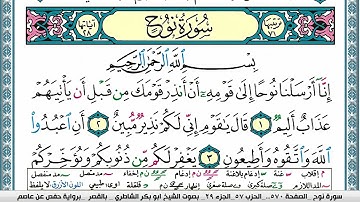 سُورَةُ نُوحٍ
بِسْمِ ٱللَّهِ ٱلرَّحْمَٰنِ ٱلرَّحِيمِ
إِنَّآ أَرْسَلْنَا نُوحًا إِلَىٰ قَوْمِهِۦٓ أَنْ أَنذِرْ قَوْمَكَ مِن قَبْلِ أَن يَأْتِيَهُمْ
عَذَابٌ أَلِيمٌ ١ قَالَ يَٰقَوْمِ إِنِّي لَكُمْ نَذِيرٌ مُّبِينٌ ٢ أَنِ ٱعْبُدُوا۟
ٱللَّهَ وَٱتَّقُوهُ وَأَطِيعُونِ ٣ يَغْفِرْ لَكُم مِّن ذُنُوبِكُمْ وَيُؤَخِّرْكُمْ
سورة نوح - الصفحة ٥٧٠ - الحزب ٥٧ الجزء ٢٩ - بصوت الشيخ أبو بكر الشاطري - بالقمر - برواية حفص عن عاصم